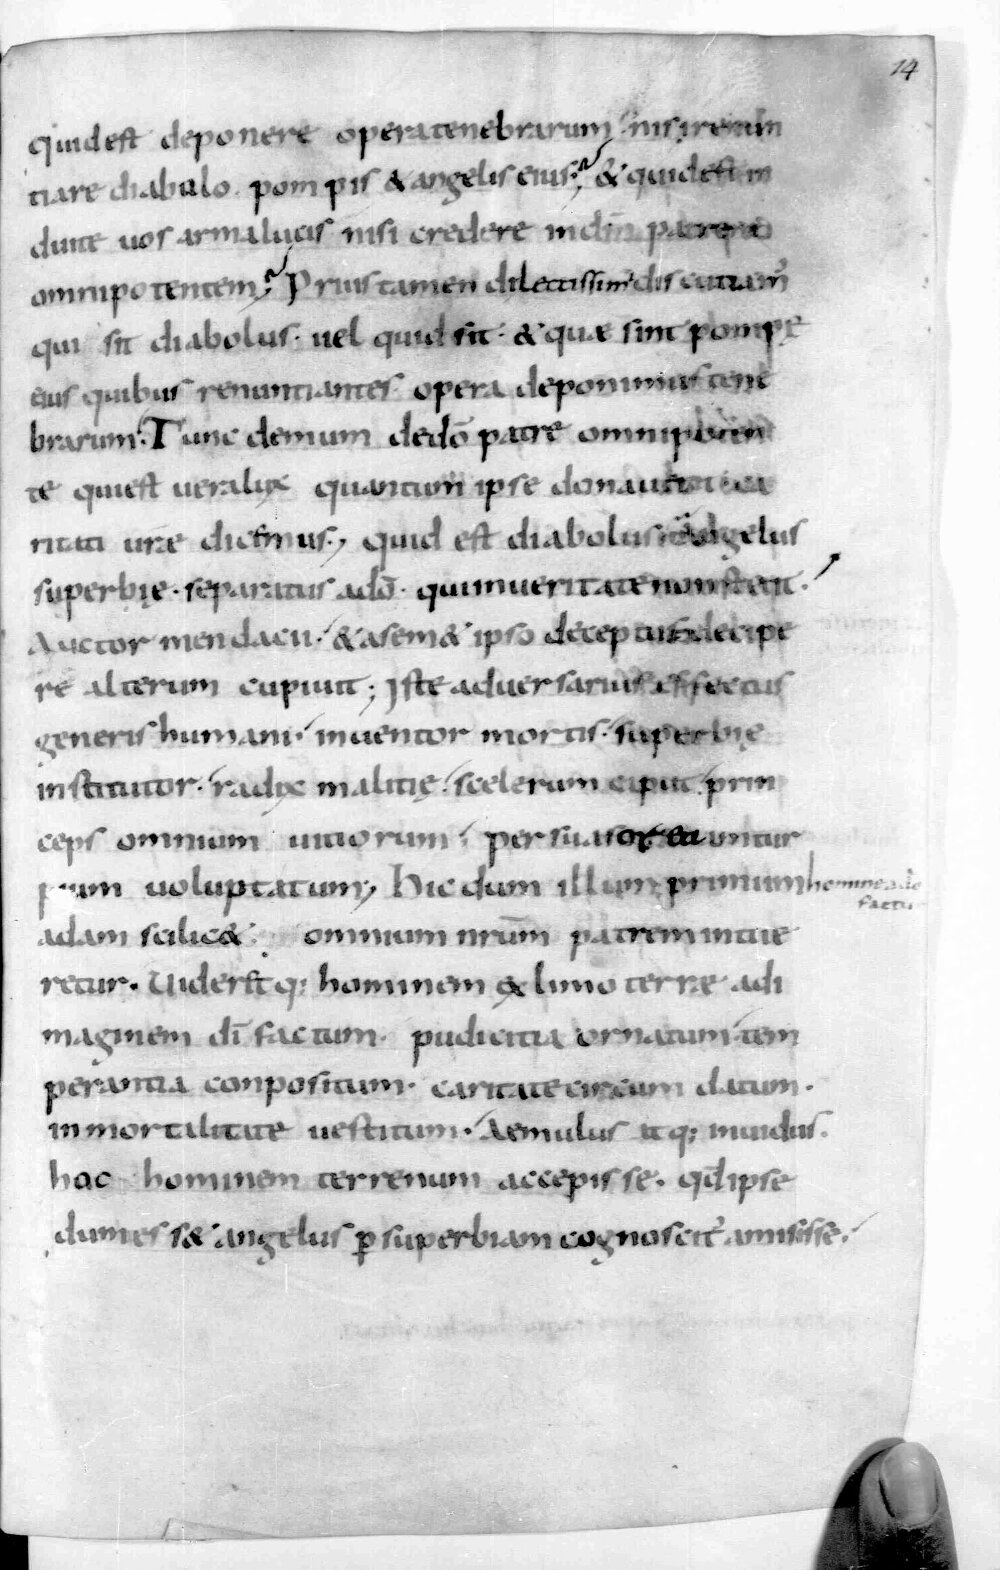 14
quid est deponere opera tenebrarum nisi renun
tiare diabulo. pompis & angelis eius; & quid est in
duite uos arma lucis nisi credere in dm̄ patrem
omnipotentem; Prius tamen dilectissimi discutiam̄
qui sit diabolus. uel quid sit. & quae sint pompę
eius quibus renuntiantes opera deponimus tene
brarum. Tunc demum de dō patre omnipoten
te qui est uera lux quantum ipse donauerit ca
ritati urē dicimus; quid est diabolus angelus
superbię. separatus a dō. qui in ueritate non stetit.
Auctor mendacii. & a semet ipso deceptus decipe
re alterum cupiuit; Iste aduersarius effectus
generis humani. inuentor mortis. superbię
institutor. radix malitię. scelerum caput. prin
ceps omnium uitiorum. persuasor &iam tur
pium uoluptatum; Hic dum illum primum homine a dō
factū
adam scilic& omnium nrūm patrem intue
retur. Uiderit q; hominem ex limo terrae ad i
maginem dī factum. pudicitia ornatum. tem
perantia conpositum. caritate circum datum.
inmortalitate uestitum. Aemulus atq; inuidus.
hoc hominem terrenum accepisse. qd̄ ipse
dum ess& angelus p̱ superbiam cognoscit̄ amisisse.